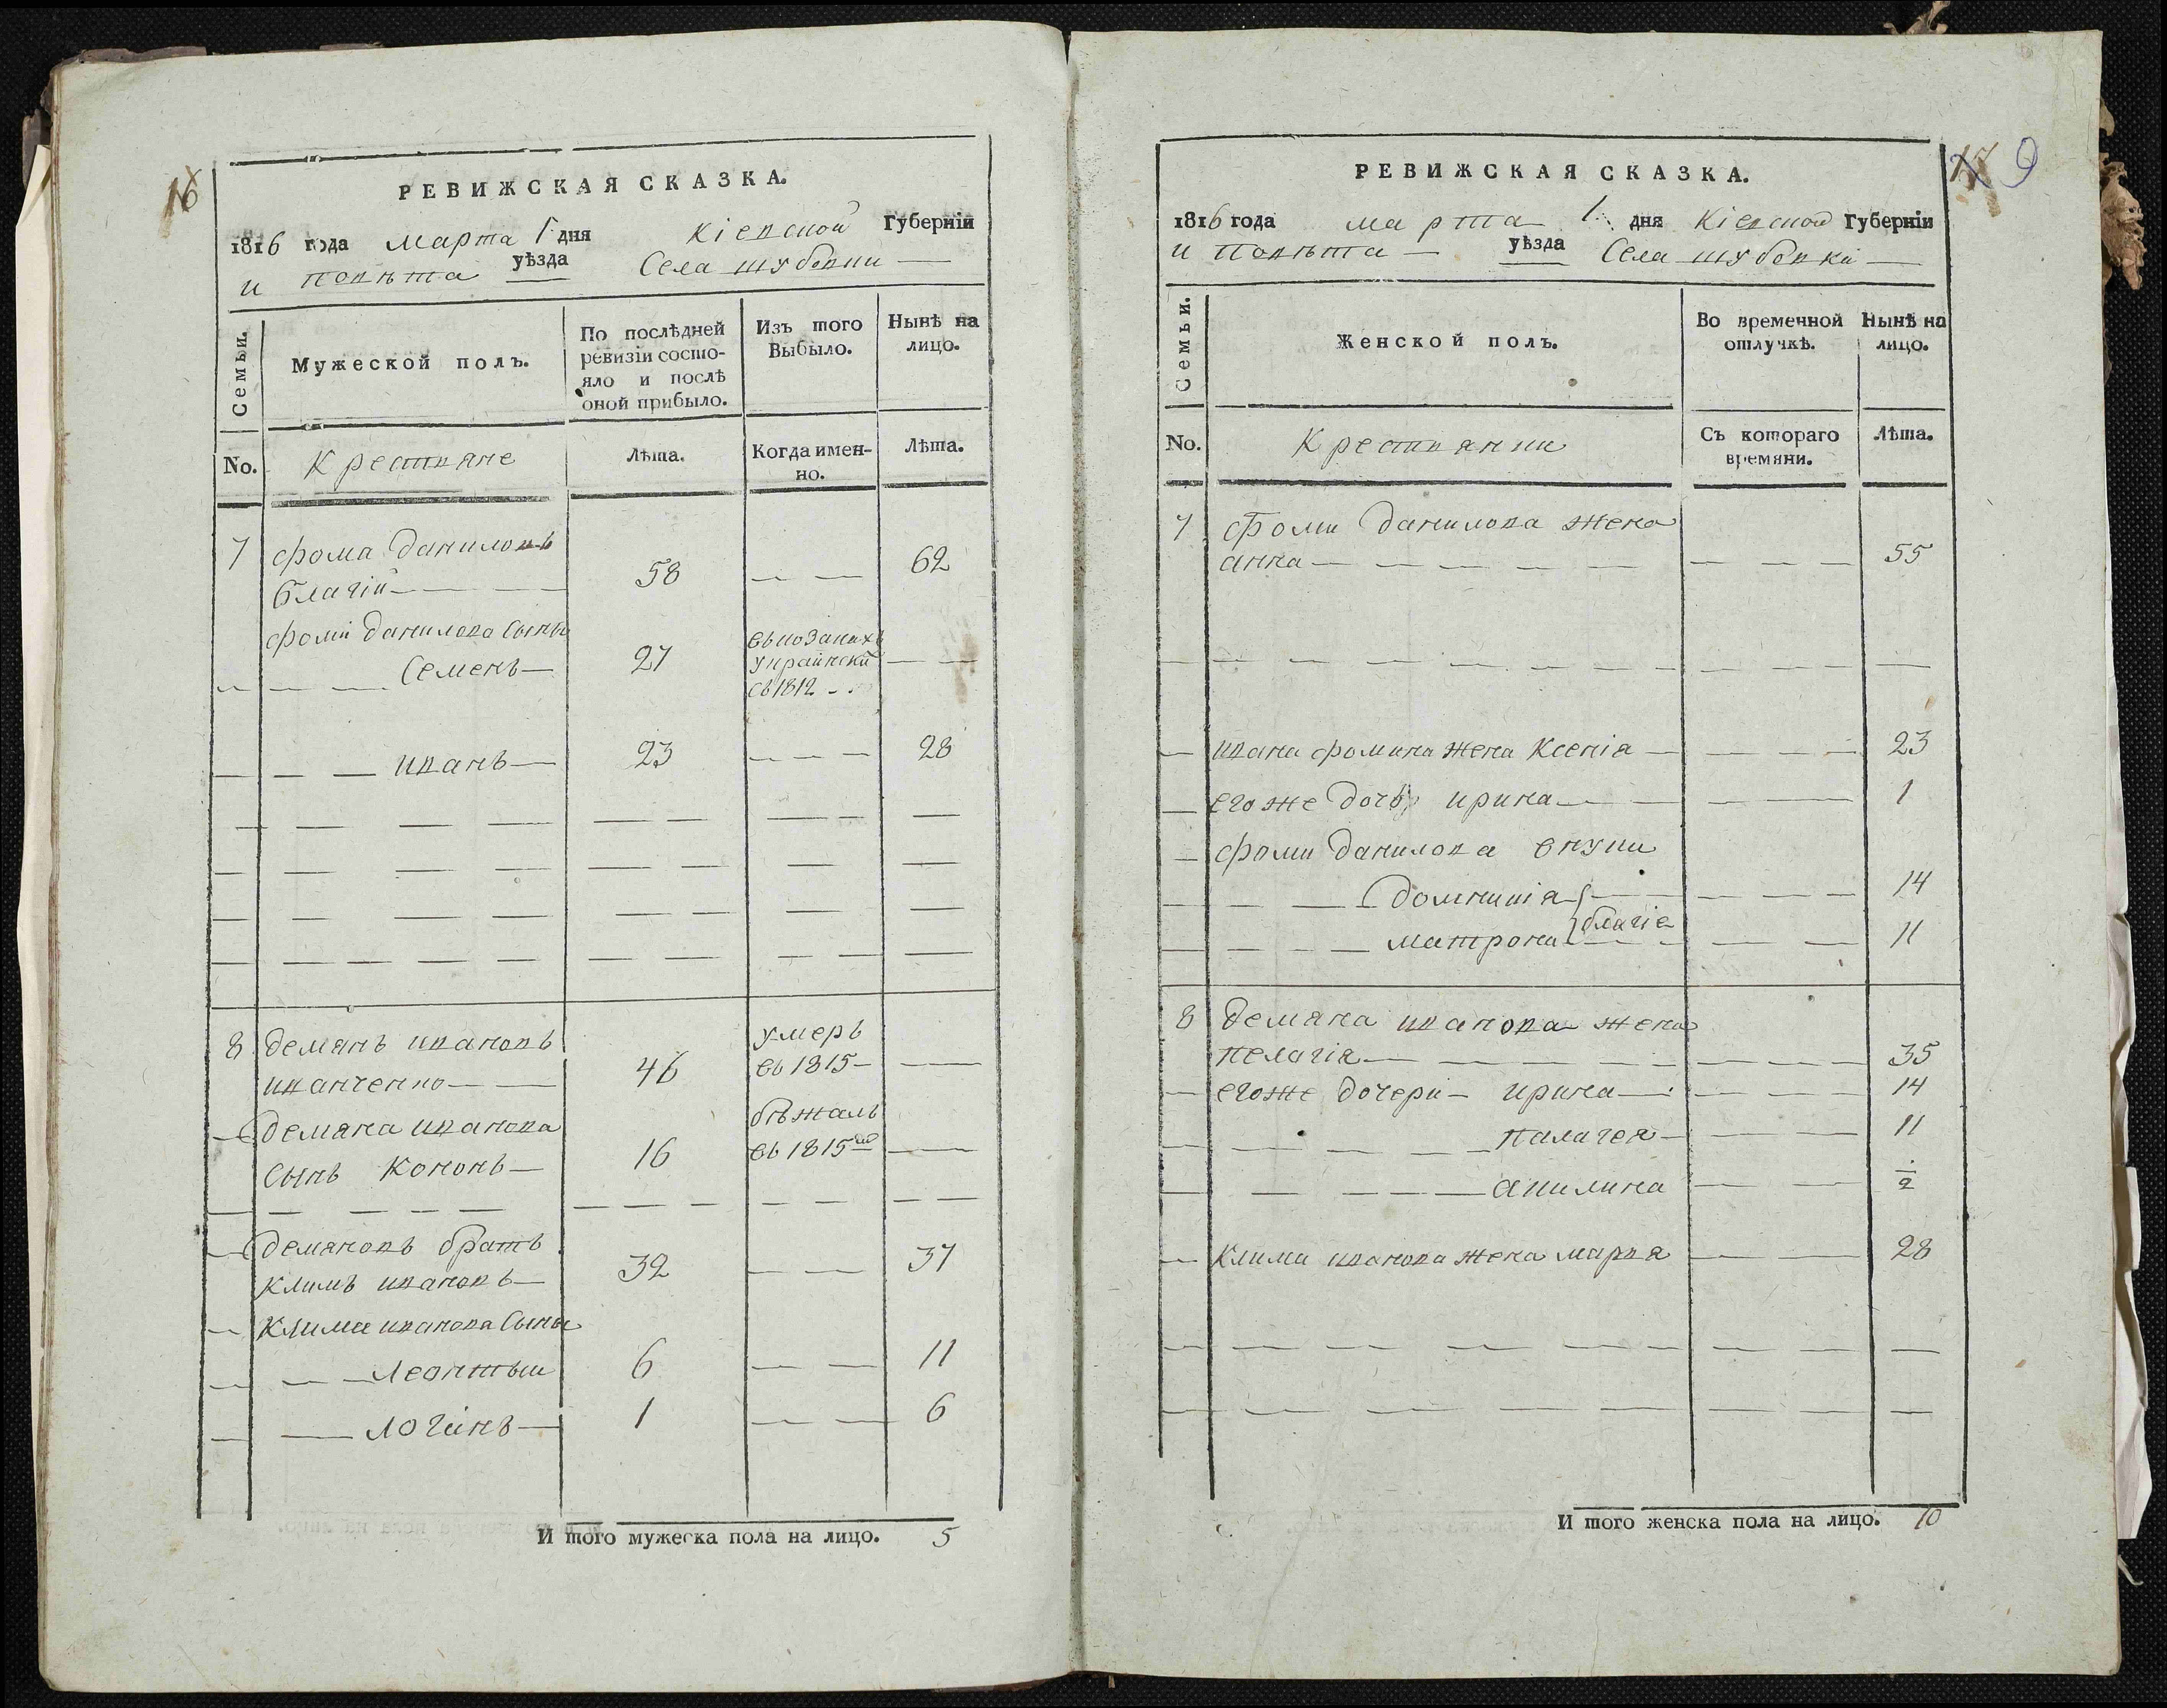 16
РЕВИЖСКАЯ СКАЗКА.
1816 года марта 1 дня Кіевской Губерніи
и повѣта уѣзда Села шубовки
Семьи.
Мужеской полъ.
По послѣдней ревизіи состояло и послѣ оной прибыло.
Изъ того Выбыло.
Нынѣ на лицо.
No.
Крестьяне
Лѣта.
Когда именно.
Лѣта.
7 фома даниловъ
благій 58 62
фоми данилова Сыны
Семенъ 27 въ козакахъ украински съ 1812
иванъ 23 28
8 демянъ ивановъ
иванченко 46 умеръ въ 1815
демяна иванова
Сынъ Кононъ 16 бѣжалъ въ 1815
демяновъ братъ
климъ ивановъ 32 37
клима иванова Сыны
леонтьи 6 11
логинъ 1 6
И того мужеска пола на лицо. 5
9
РЕВИЖСКАЯ СКАЗКА.
1816 года марта 1 дня Кіевской Губерніи
и повѣта уѣзда Села шубовки
Семьи.
Женской полъ.
Во временной отлучкѣ.
Нынѣ на лицо.
No.
Крестьянки
Съ котораго времяни.
Лѣта.
7 Фоми данилова жена
анна 55
ивана фомина жена Ксенія 23
егоже дочь ирина 1
фоми данилова внуки
домникія 14
благіе
матрона 11
8 демяна иванова жена
пелагія 35
егоже дочери ирина 14
палагея 11
акилина 1/2
клима иванова жена марвя 28
И того женска пола на лицо. 10